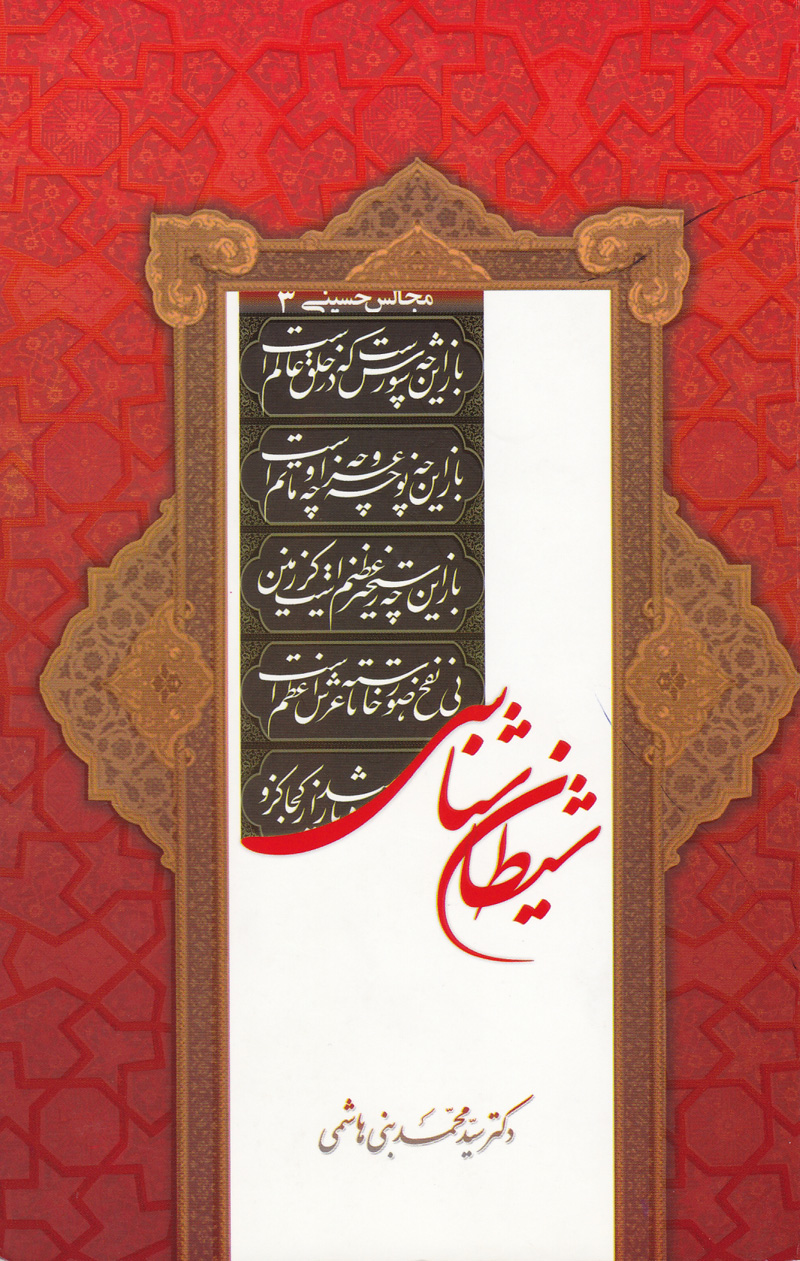 مجالس حسینی ۳
باز این چه شورش است که در خلق عالم است
باز این چه نوحه و چه عزا و چه ماتم است
باز این چه رستخیز عظیم است کز زمین
بی نفخ صور خاسته تا عرش اعظم است
شیطان شناسی
دکتر سیّد محمّد بنی هاشمی